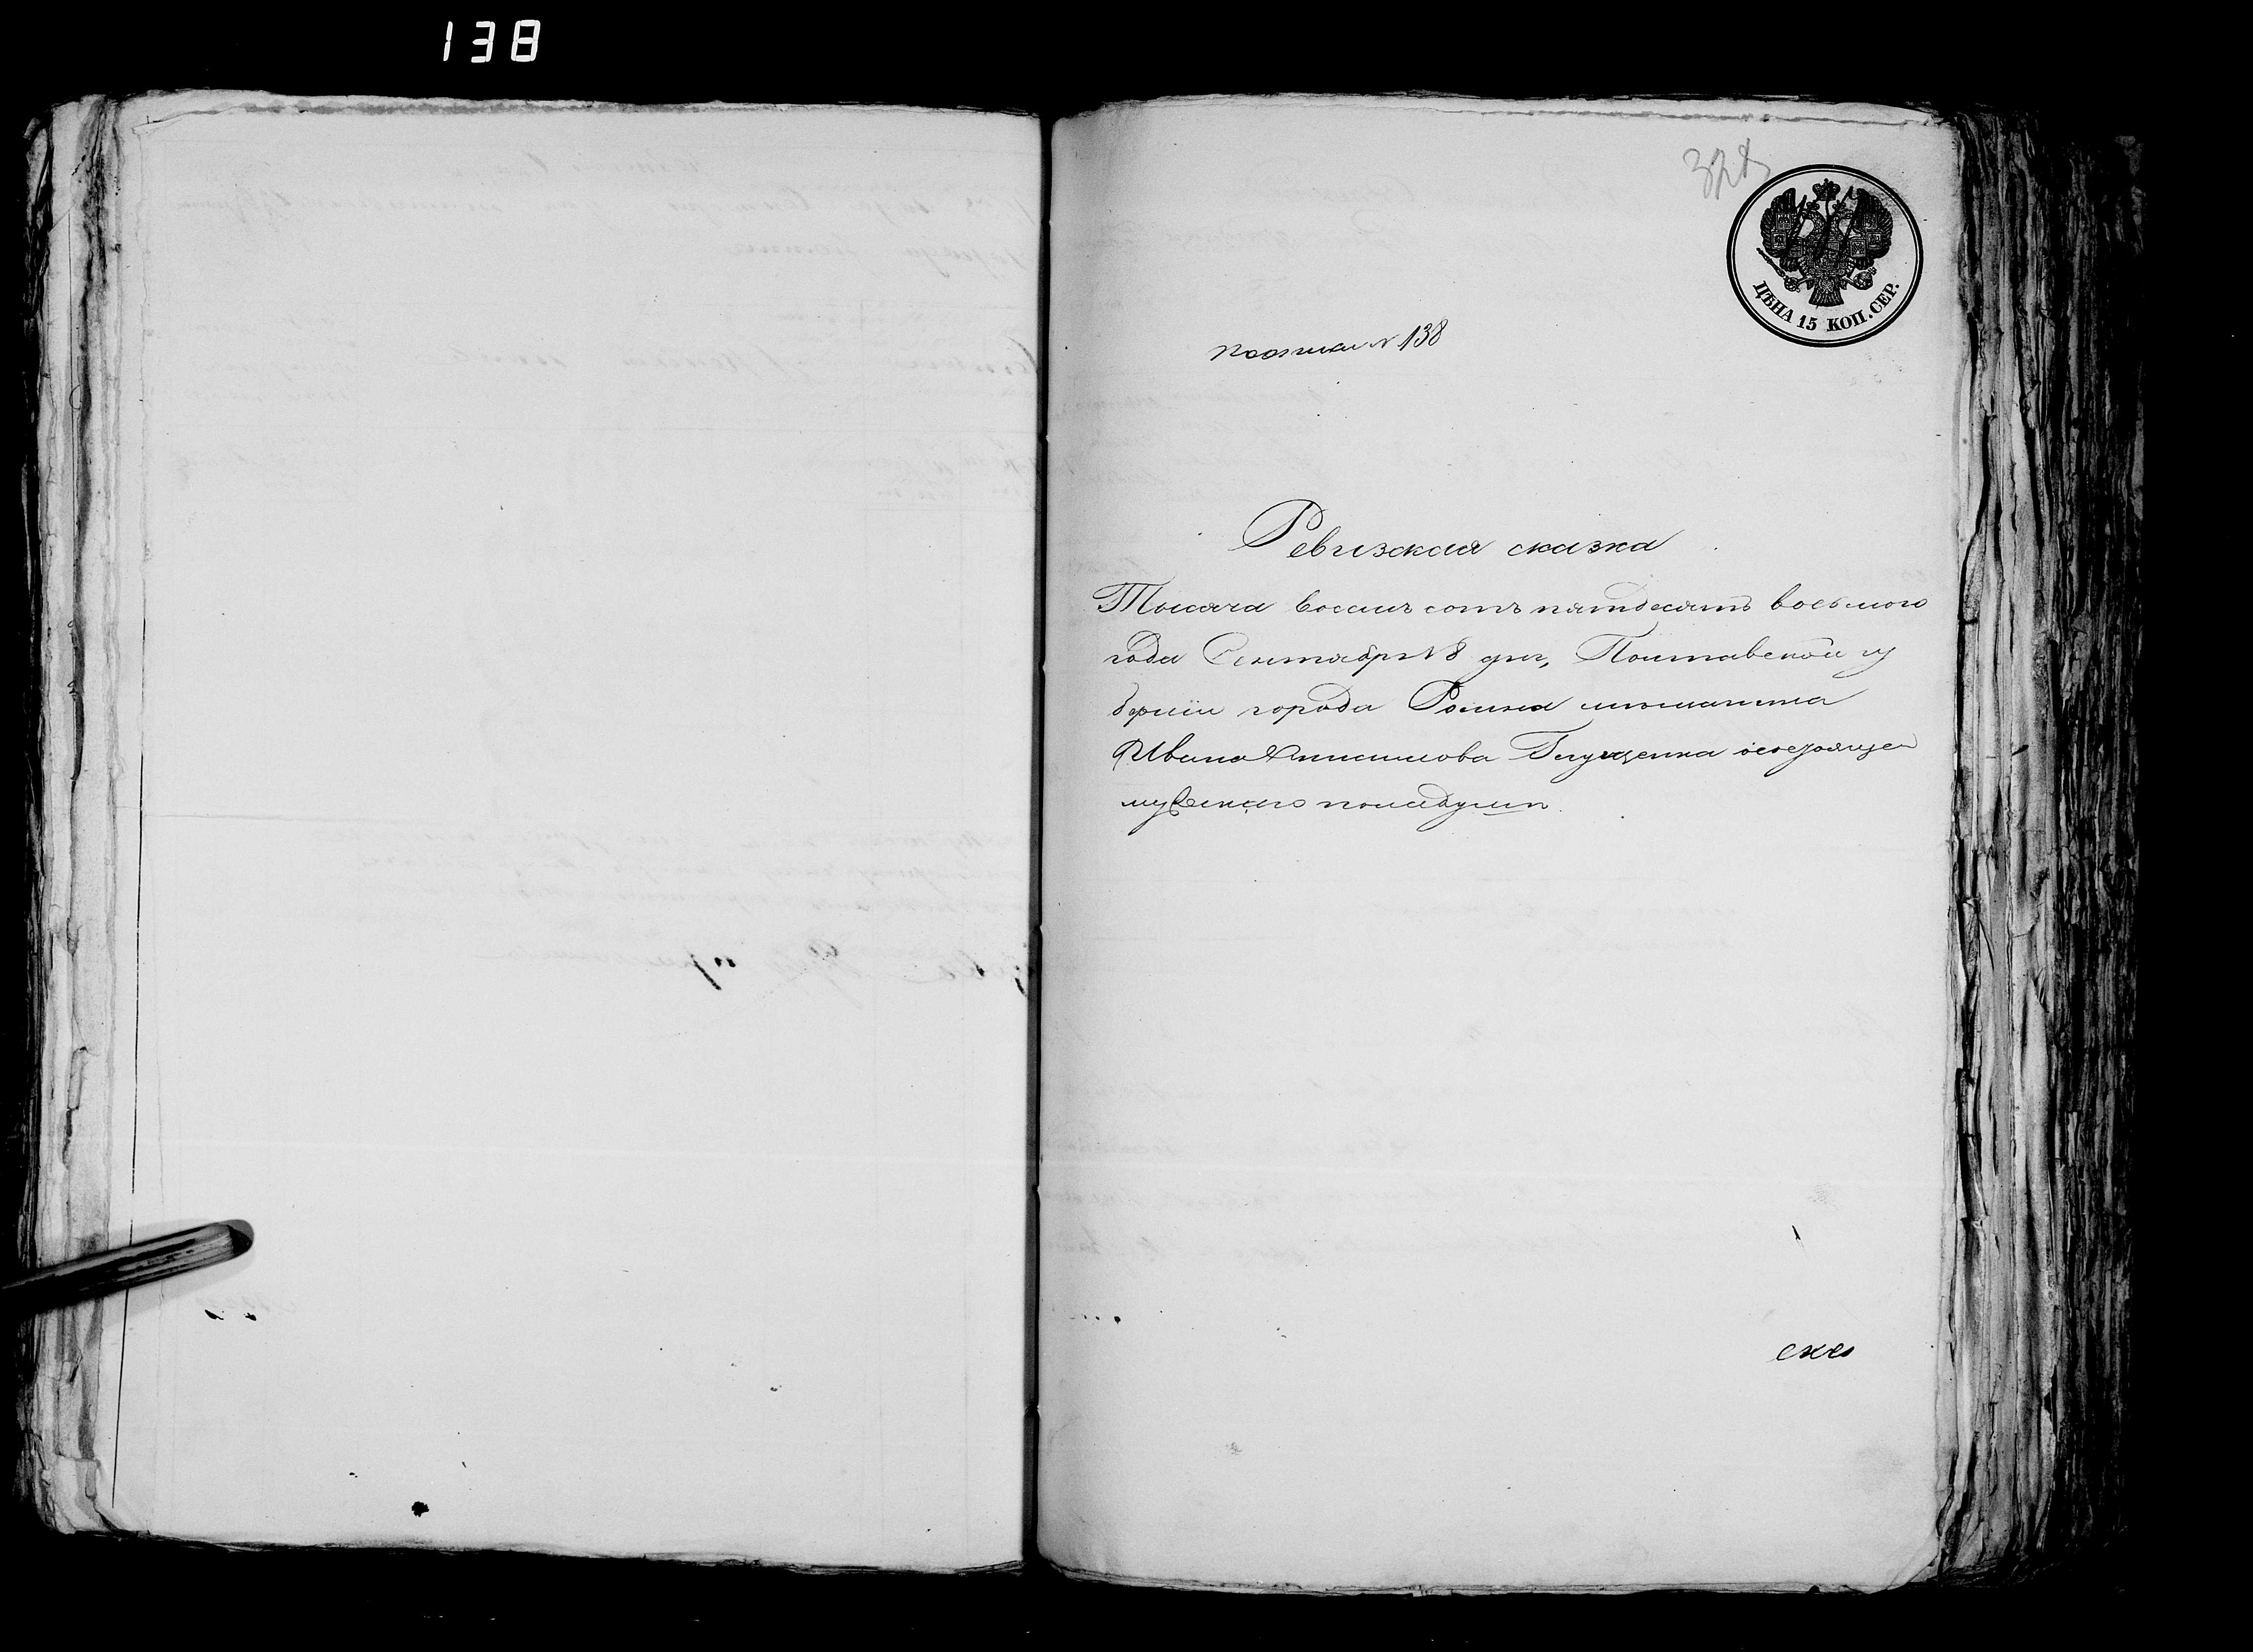 138
328
ЦѢНА 15 КОП. СЕР.
по описи № 138
Ревизская сказка
Тысяча восемь сотъ пятдесятъ восьмого
года Сентября 18 дня, Полтавской гу
берніи города Ромна мѣщанина
Ивана Онисимова Глущенка о состоящем
мужескаго пола душъ.